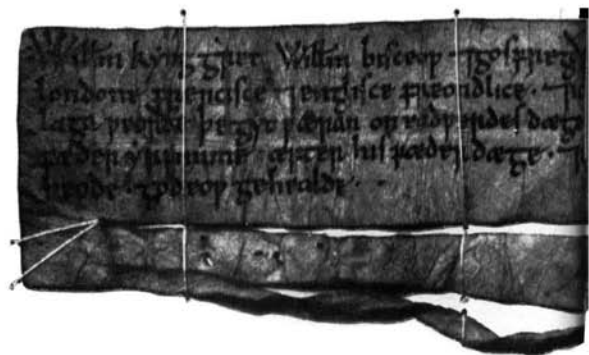 Willm kyng gret Willm bisceop ⁊ gosfregð
londone frencisce ⁊ englisce freondlice · ⁊
laga weorðe þe gyt wæran on eadwerdes dæge
fæder yrfnume æfter his fæder dæge · ⁊
beode · god eow gehealde ·